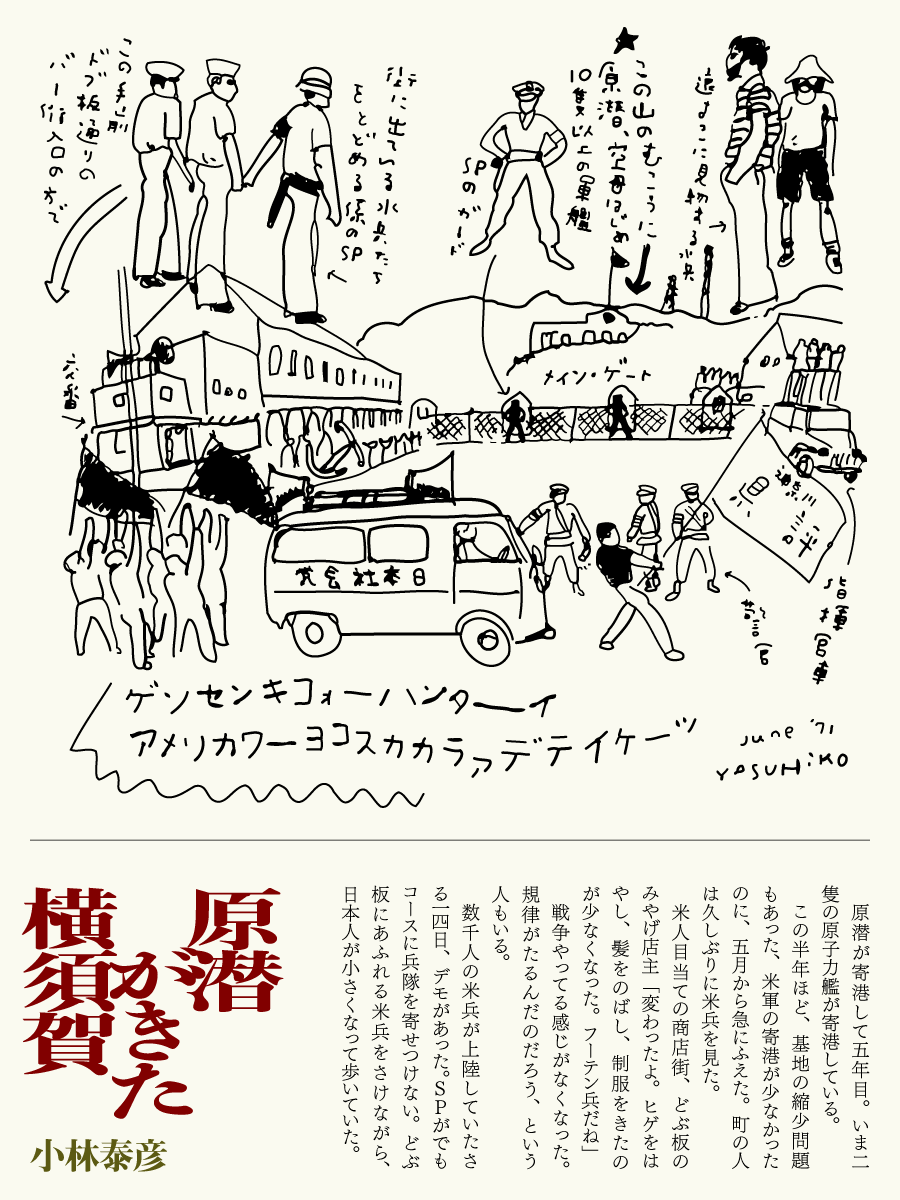 この手前
ドブ板通りの
バー街入口の方で
街に出ている水兵たち
をとどめる係のSP
SPのガード
この山のむこうに
原潜、空母はじめ
10隻以上の軍艦
遠まきに見物する水兵
交番
メイン・ゲート
日本社会党
警官
指揮官車
ゲンセンキコォーハンターイ
アメリカワーヨコスカカラァデテイケーッ
June '71
YASUHiKO
原潜が寄港して五年目。いま二
隻の原子力艦が寄港している。
この半年ほど、基地の縮少問題
もあった、米軍の寄港が少なかった
のに、五月から急にふえた。町の人
は久しぶりに米兵を見た。
米人目当ての商店街、どぶ板の
みやげ店主「変わったよ。ヒゲをは
やし、髪をのばし、制服をきたの
が少なくなった。フーテン兵だね」
戦争やってる感じがなくなった。
規律がたるんだのだろう、という
人もいる。
数千人の米兵が上陸していたさ
る一四日、デモがあった。SPがでも
コースに兵隊を寄せつけない。どぶ
板にあふれる米兵をさけながら、
日本人が小さくなって歩いていた。
原潜
がきた
横須賀
小林泰彦